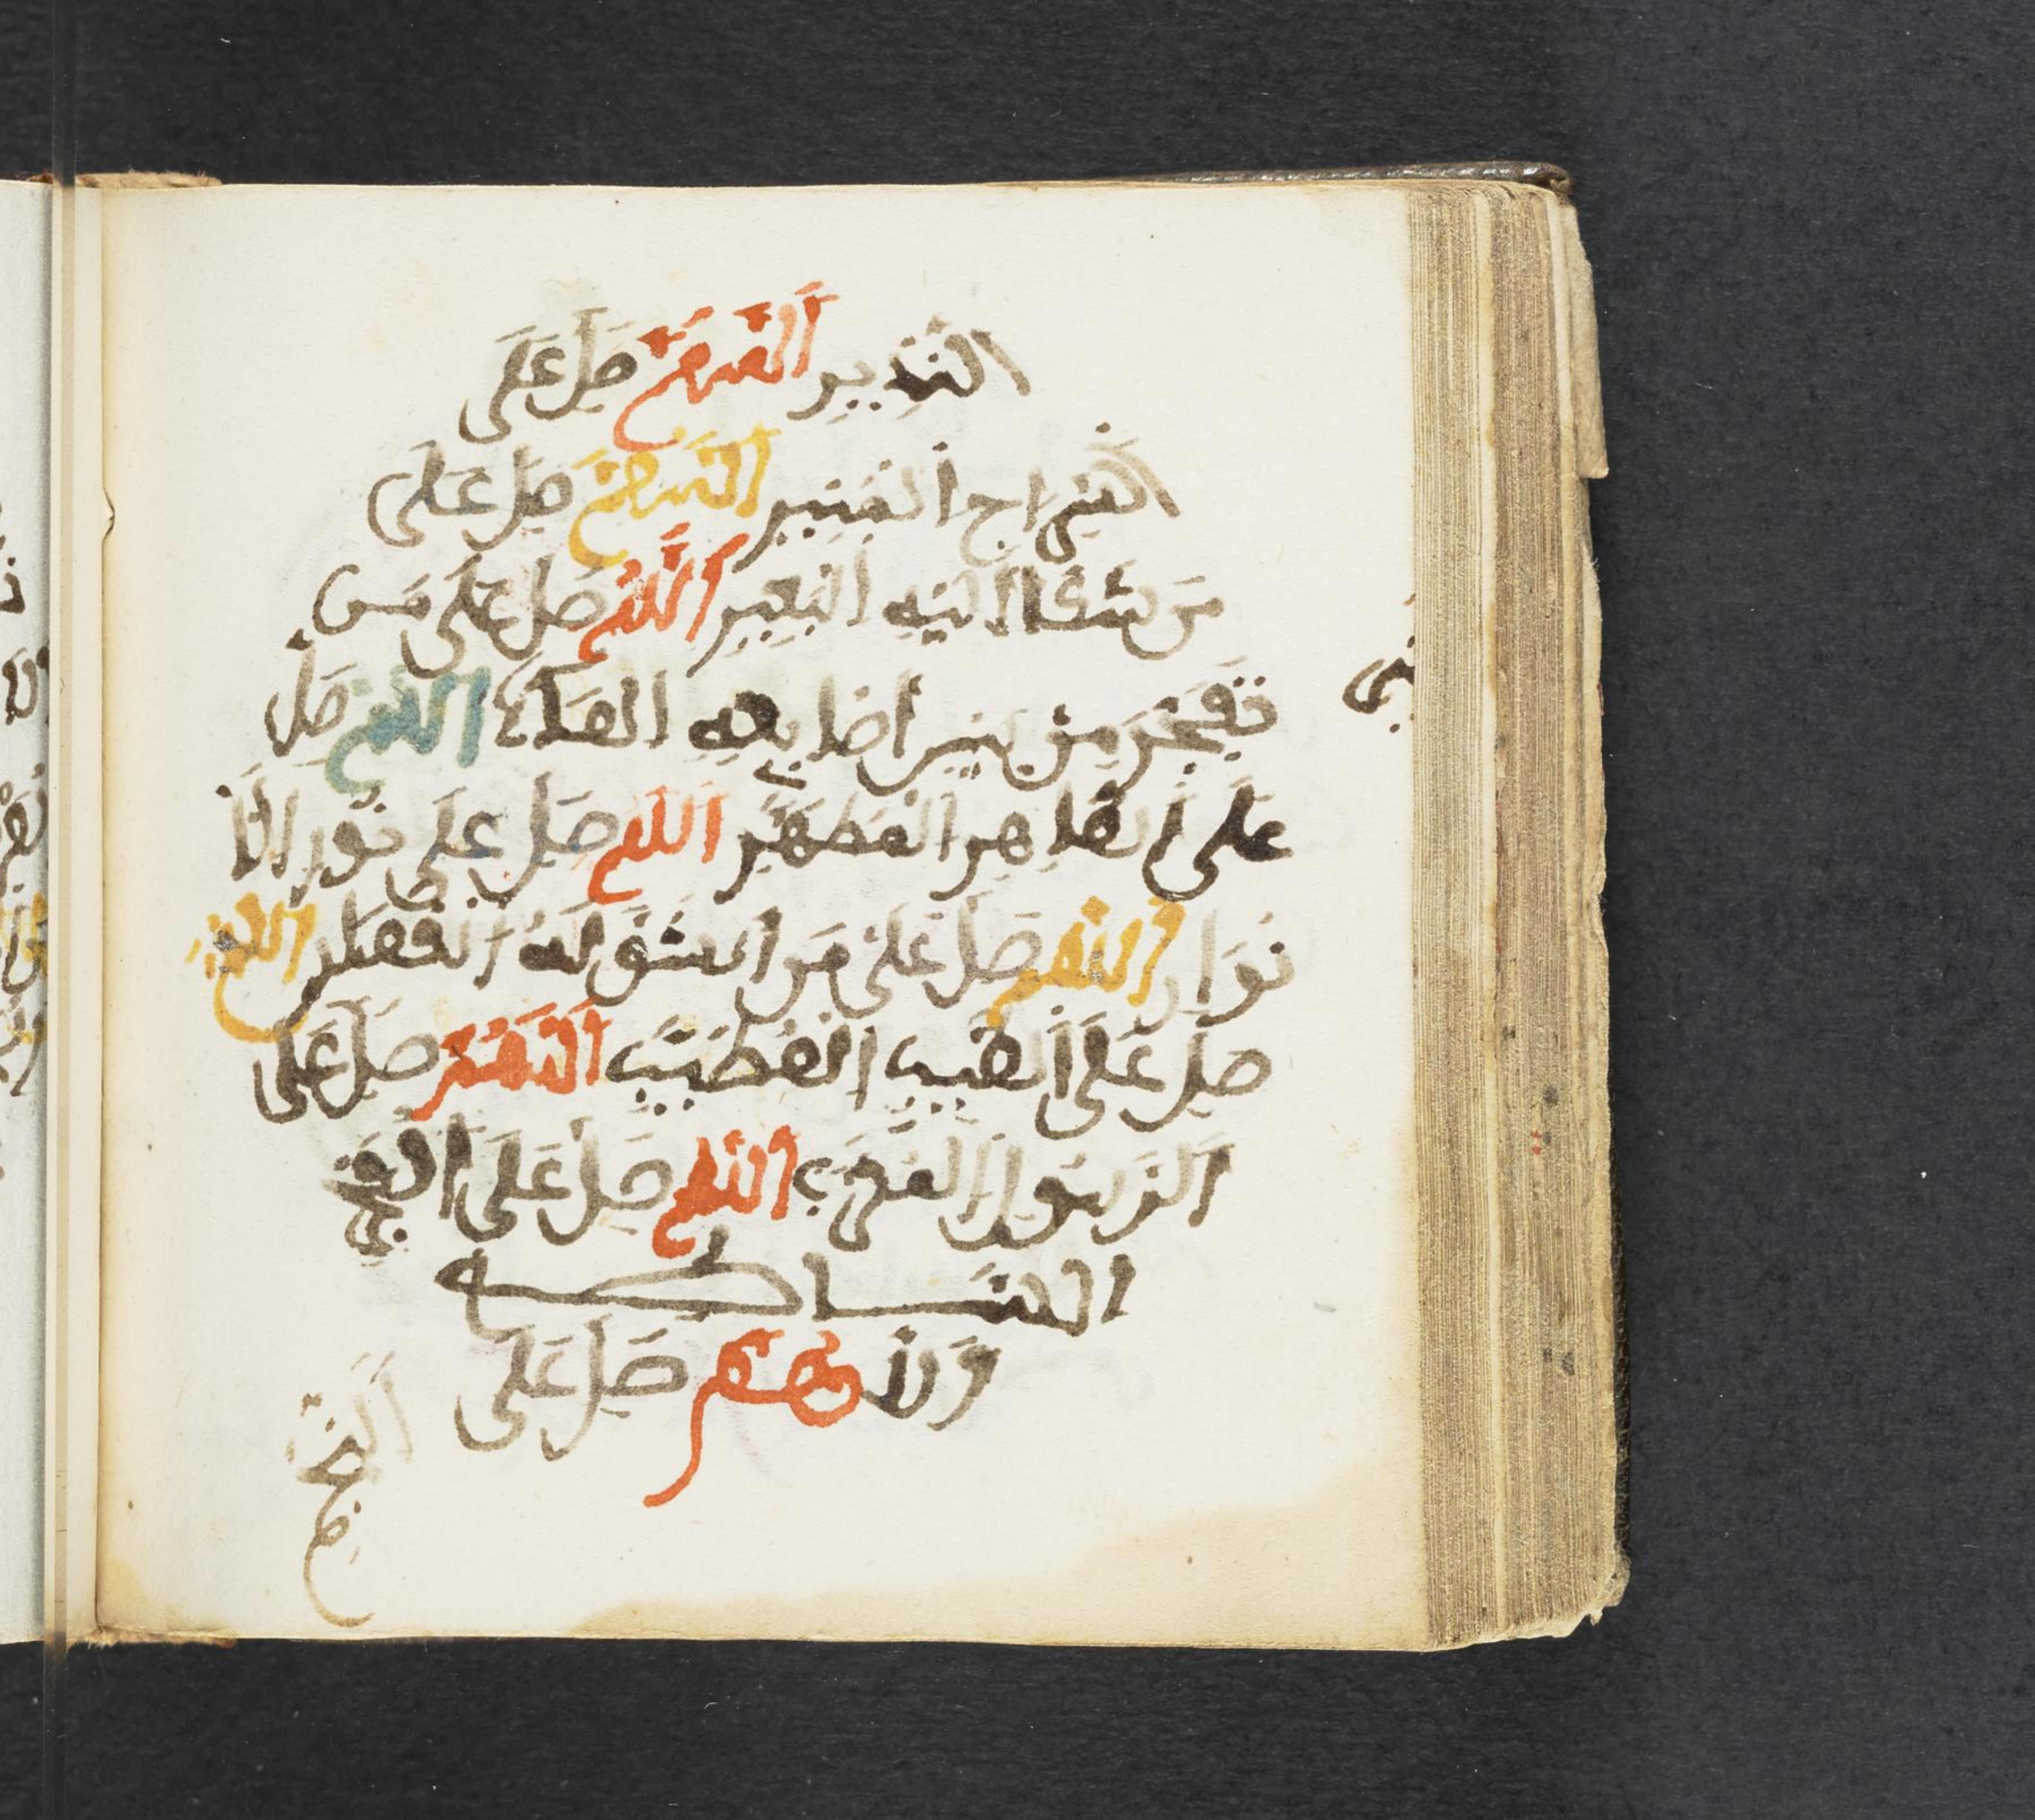 النذير اللهم صل على
السراج المنير اللهم صل على
من شكا إليه البعير اللهم صل على من
تفجر من بين أصابعه الماء اللهم صل
على الطاهر المطهر اللهم صل على نور الأ
نوار اللهم صل على من انشق له القمر اللهم
صل على الطيب المطيب اللهم صل على
الرسول المقرب اللهم صل على الفجر
الساطع
اللهم صل على
النجم